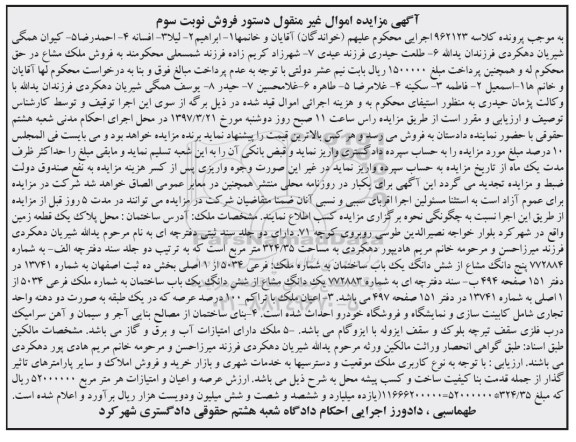 آگهی مزایده اموال غیر منقول دستور فروش نوبت سوم
به موجب پرونده کلاسه ۹۶۲۱۲۳اجرایی محکوم علیهم (خواندگان) آقایان و خانمها۱- ابراهیم۲- لیلا۳- افسانه ۴- احمدرضا۵- کیوان همگی
شیریان دهکردی فرزندان یدالله ۶- طلعت حیدری فرزند عیدی ۷- شهرزاد کریم زاده فرزند شمسعلی محکومند به فروش ملک مشاع در حق
محکوم له و همچنین پرداخت مبلغ ۱۵۰۰۰۰۰ ریال بابت نیم عشر دولتی با توجه به عدم پرداخت مبالغ فوق و بنا به درخواست محکوم لها آقایان
و خانم ها۱-اسمعیل ۲- فاطمه ۳- سکینه ۴- غلامرضا ۵- طاهره ۶-غلامحسین ۷- حیدر ۸- یوسف همگی شیریان دهکردی فرزندان یدالله با
وکالت پژمان حیدری به منظور استیفای محکوم به و هزینه اجرائی اموال قید شده در ذیل برگه از سوی این اجرا توقیف و توسط کارشناس
توصیف و ارزیابی و مقرر است از طریق مزایده راس ساعت ۱۱ صبح روز دوشنبه مورخ ۱۳۹۷/۳/۲۱ در محل اجرای احکام مدنی شعبه هشتم
حقوقی با حضور نماینده دادستان به فروش می رسدو هرکس بالاترین قیمت را پیشنهاد نماید برنده مزایده خواهد بود و می بایست فی المجلس
۱۰ درصد مبلغ مورد مزایده را به حساب سپرده دادگستری واریز نماید و قبض بانکی آن را به این شعبه تسلیم نماید و مابقی مبلغ را حداکثر ظرف
مدت یک ماه از تاریخ مزایده به حساب سپرده واریز نماید در غیر این صورت وجوه واریزی پس از کسر هزینه مزایده به نفع صندوق دولت
ضبط و مزایده تجدید می گردد این آگهی برای یکبار در روزنامه محلی منتشر همچنین در معابر عمومی الصاق خواهد شد شرکت در مزایده
برای عموم آزاد است به استثنا مسئولین اجرا اقربای سببی و نسبی آنان ضمنا متقاضیان شرکت در مزایده می توانند در مدت ۵ روز قبل از مزایده
از طریق این اجرا نسبت به چگونگی نحوه برگزاری مزایده کسب اطلاع نمایند. مشخصات ملک: آدرس ساختمان : محل پلاک یک قطعه زمین
واقع در شهرکرد بلوار خواجه نصیرالدین طوسی روبروی کوچه ۷۱ دارای دو جلد سند ثبتی دفترچه ای به نام مرحوم یدالله شیریان دهکردی
فرزند میرزاحسن و مرحومه خانم مریم هادیپور دهکردی به مساحت ۳۲۴/۳۵ متر مربع است که به ترتیب دو جلد سند دفترچه الف- به شماره
۷۷۲۸۸۴ پنج دانگ مشاع از شش دانگ یک باب ساختمان به شماره ملک: فرعی ۵۰۳۴ از ۱ اصلی بخش ده ثبت اصفهان به شماره ۱۳۷۴۱ در
دفتر ۱۵۱ صفحه ۴۹۴ ب- سند دفترچه ای به شماره ۷۷۲۸۸۳ یک دانگ مشاع از شش دانگ یک باب ساختمان به شماره ملک فرعی ۵۰۳۴ از
۱اصلی به شماره ۱۳۷۴۱ در دفتر ۱۵۱ صفحه ۴۹۷ می باشد. ۳- اعیان ملک با تراکم ۱۰۰ درصد عرصه که در یک طبقه به صورت دو دهنه واحد
تجاری شامل کابینت سازی و نمایشگاه و فروشگاه خودرو احداث شده است. ۴-بنای ساختمان از مصالح بنایی آجر و سیمان و آهن سرامیک
درب فلزی سقف تیرچه بلوک و سقف ایزوله با ایزوگام می باشد. -۵ ملک دارای امتیازات آب و برق و گاز می باشد. مشخصات مالکین
طبق اسناد: طبق گواهی انحصار وراثت مالکین ورثه مرحوم یدالله شیریان دهکردی فرزند میرزاحسن و مرحومه خانم مریم هادی پور دهکردی
می باشند. ارزیابی : با توجه به نوع کاربری ملک موقعیت و دسترسیها به خدمات شهری و بازار خرید و فروش املاک و سایر پارامترهای تاثیر
گذار از جمله قدمت بنا کیفیت ساخت و کسب پیشه محل به شرح ذیل می باشد. ارزش عرصه و اعیان و امتیازات هر متر مربع ۵۲۰۰۰۰۰۰ ریال
که مبلغ ۳۲۴/۳۵*۵۲۰۰۰۰۰۰=۱۱۶۶۶۲۰۰۰۰۰(یازده میلیارد و ششصد و شصت و شش میلیون ودویست هزار ریال برآورد و اعلام شده است.
طهماسبی ، دادورز اجرایی احکام دادگاه شعبه هشتم حقوقی دادگستری شهرکرد